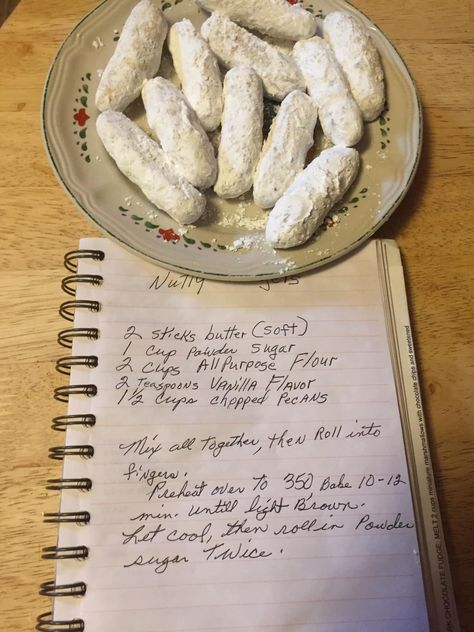 Nutty
2 sticks butter (soft)
1 cup Powder sugar
2 cups All Purpose Flour
2 Teaspoons Vanilla Flavor
1 1/2 cups chopped Pecans
Mix all together, then Roll into
fingers.
Preheat oven To 350, Bake 10-12
min. untill light Brown.
Let cool, then roll in Powder
sugar Twice.
RK CHOCOLATE FUDGE: MELT 2 cups miniature marshmallows with chocolate chips and sweetened